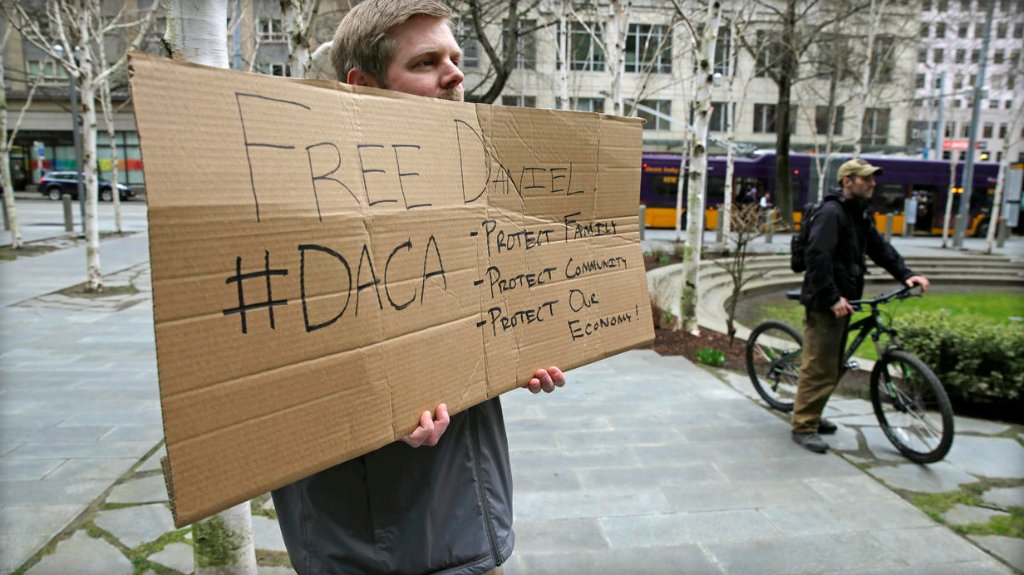 FREE DANIEL!
#DACA
- PROTECT FAMILY
- PROTECT COMMUNITY
- PROTECT OUR
ECONOMY!